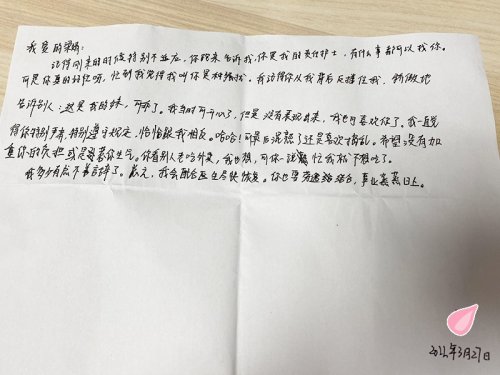 我爱的梁娇:
记得刚来的时候特别不适应,你跑来告诉我,你是我的责任护士,有什么事都可以找你。
可是你真的好忙呀,忙到我觉得我叫你是种
我记得你从我背后反搂住我,骄傲地
告诉别人:这是我的妹,可乖了。我当时可开心了,但是没有表现出来,我也可喜欢你了。我一直觉
得你特别严肃,特别遵守规定,恰恰跟我相反。哈哈!可最后混熟了还是喜欢捣乱。希望没有加
重你的负担或是惹你生气。你看别人老吃外卖,我也想,可你一说 忙我就不想吃了。
我多少有点不善言辞了。总之,我会配合医生尽快恢复。你也要 事业蒸蒸日上。
2022年3月27日